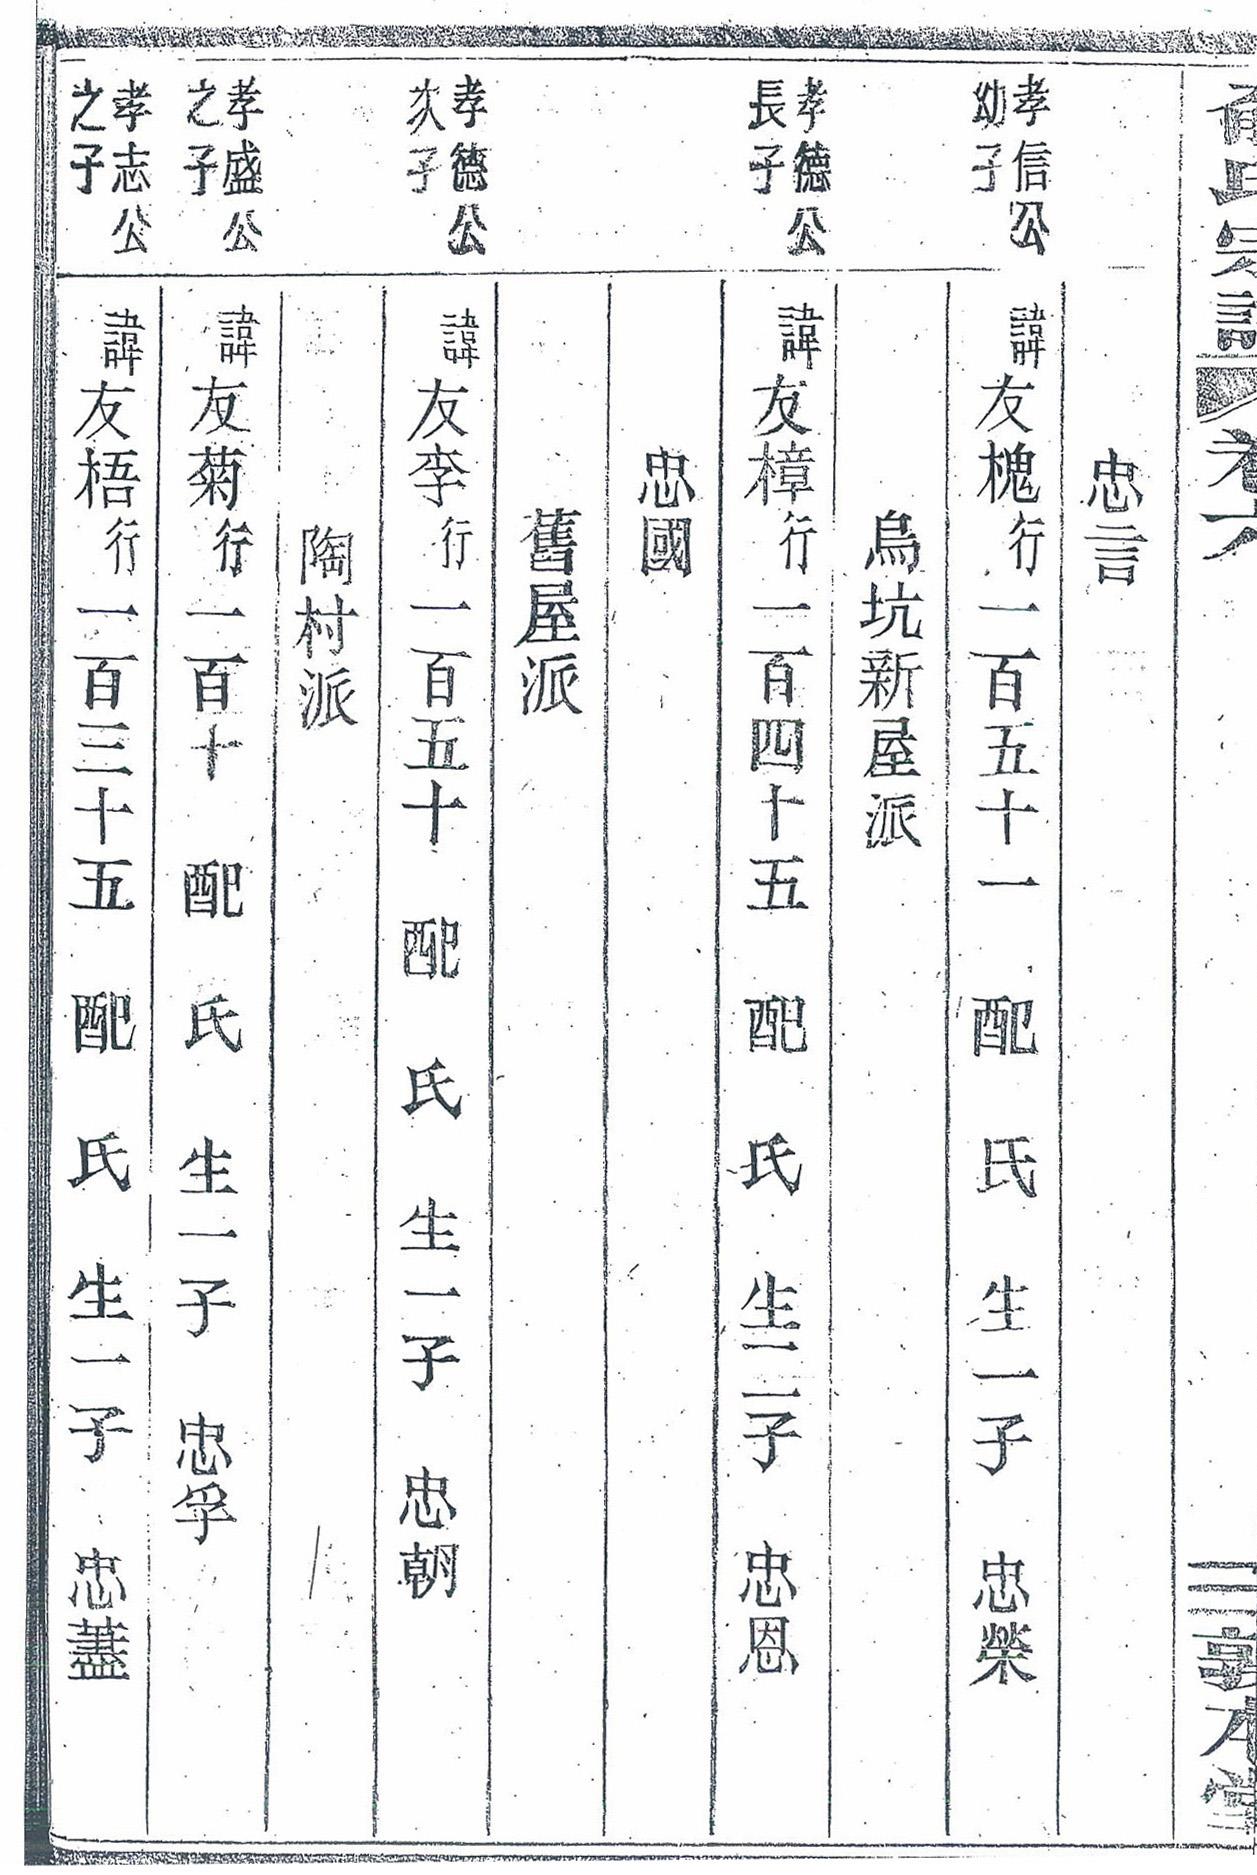 氏宗譜 卷六 敦本堂
忠言
孝信公
幼子
諱友槐行一百五十一 配 氏 生一子 忠榮
烏坑新屋派
孝德公
長子
諱友樟行一百四十五 配 氏 生二子 忠恩
忠國
舊屋派
孝德公
次子
諱友李行一百五十 配 氏 生一子 忠朝
陶村派
孝盛公
之子
諱友菊行一百十 配 氏 生一子 忠孚
孝志公
之子
諱友梧行一百三十五 配 氏 生一子 忠藎